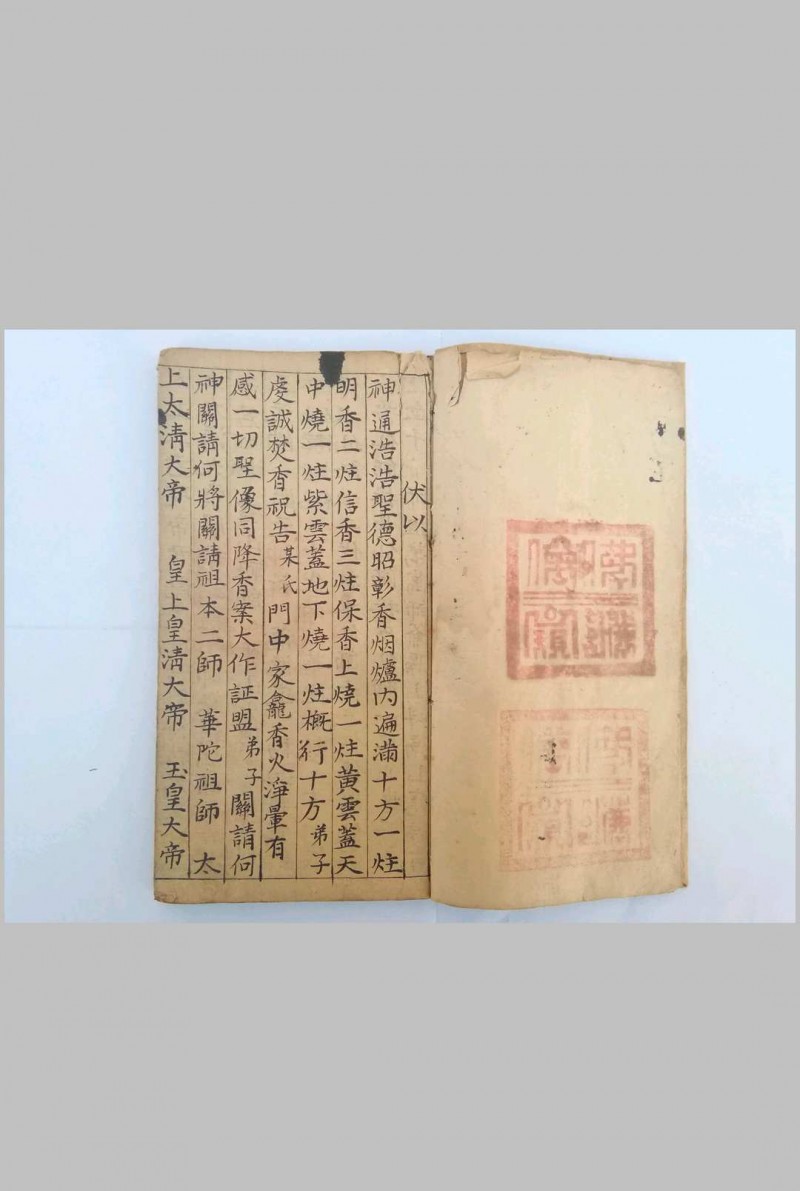 伏以
神通浩浩聖德昭彰香烟爐內遍滿十方一炷
明香二炷信香三炷保香上燒一炷黃雲蓋天
中燒一炷紫雲蓋地下燒一炷概行十方弟子
虔誠焚香祝告某氏門中家龕香火淨暈有
感一切聖像同降香案大作証盟弟子關請何
神關請何將關請祖本二師 華陀祖師 太
上太清大帝 皇上皇清大帝 玉皇大帝